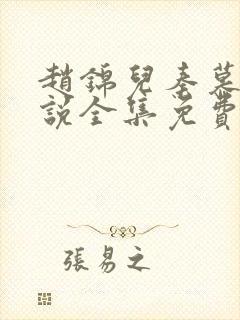 趙錦兒秦慕
說全集免費
張易之